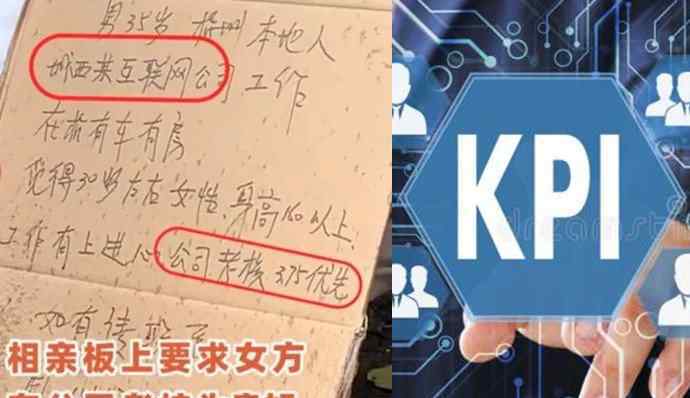 男35岁 杭州本地人
城西某互联网公司工作
在杭有车有房
觅得30岁左右女性、身高160以上、
工作有上进心 公司考核3.75优先
如有
相亲板上要求女方
KPI
dreamsti